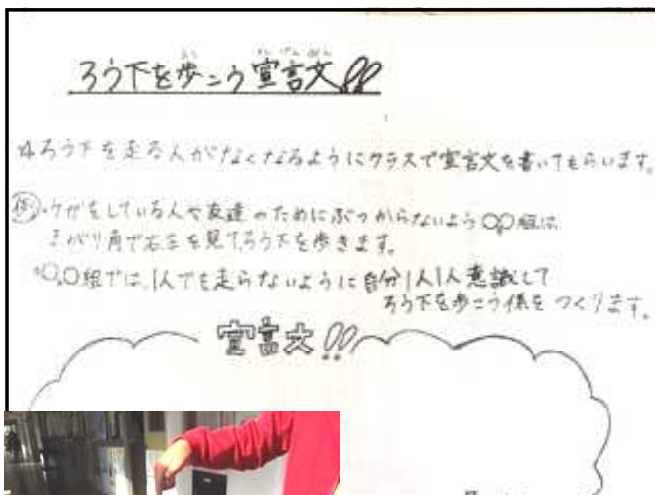 ろう下を歩こう宣言文!!
☆ろう下を走る人がなくなるようにクラスで宣言文を書いてもらいます。
例・ケガをしている人や友達のためにぶつからないよう〇〇組は
まがり角で右左を見てろう下を歩きます。
・〇〇組では、1人でも走らないように自分1人1人意識して
ろう下を歩こう係をつくります。
宣言文!!